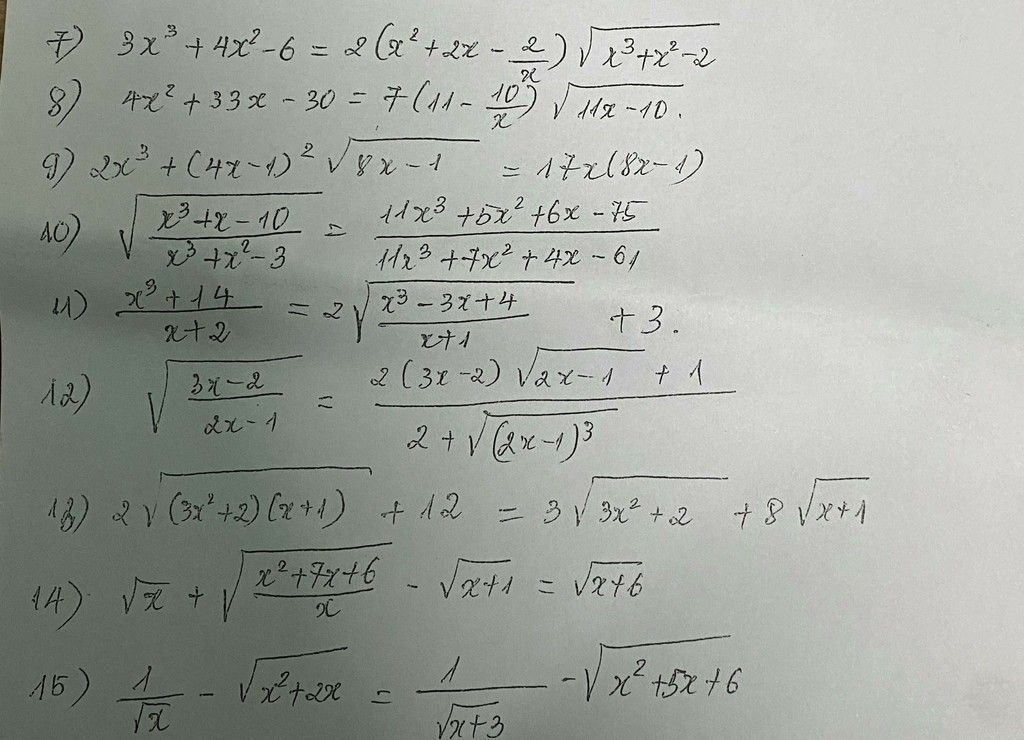 7) 3x³ + 4x² - 6 = 2(x² + 2x - 2/x) √(x³+x²-2)
8) 4x² + 33x - 30 = 7(11 - 10/x) √(11x-10).
9) 2x³ + (4x-1)² √(8x-1) = 17x(8x-1)
10) √((x³+x-10)/(x³+x²-3)) = (11x³+5x²+6x-75)/(11x³+7x²+4x-61)
11) (x³+14)/(x+2) = 2√((x³-3x+4)/(x+1)) + 3.
12) √((3x-2)/(2x-1)) = (2(3x-2)√(2x-1) + 1)/(2+√((2x-1)³))
13) 2√((3x²+2)(x+1)) + 12 = 3√(3x²+2) + 8√(x+1)
14) √x + √((x²+7x+6)/x) - √(x+1) = √(x+6)
15) 1/√x - √(x²+2x) = 1/√(x+3) - √(x²+5x+6)